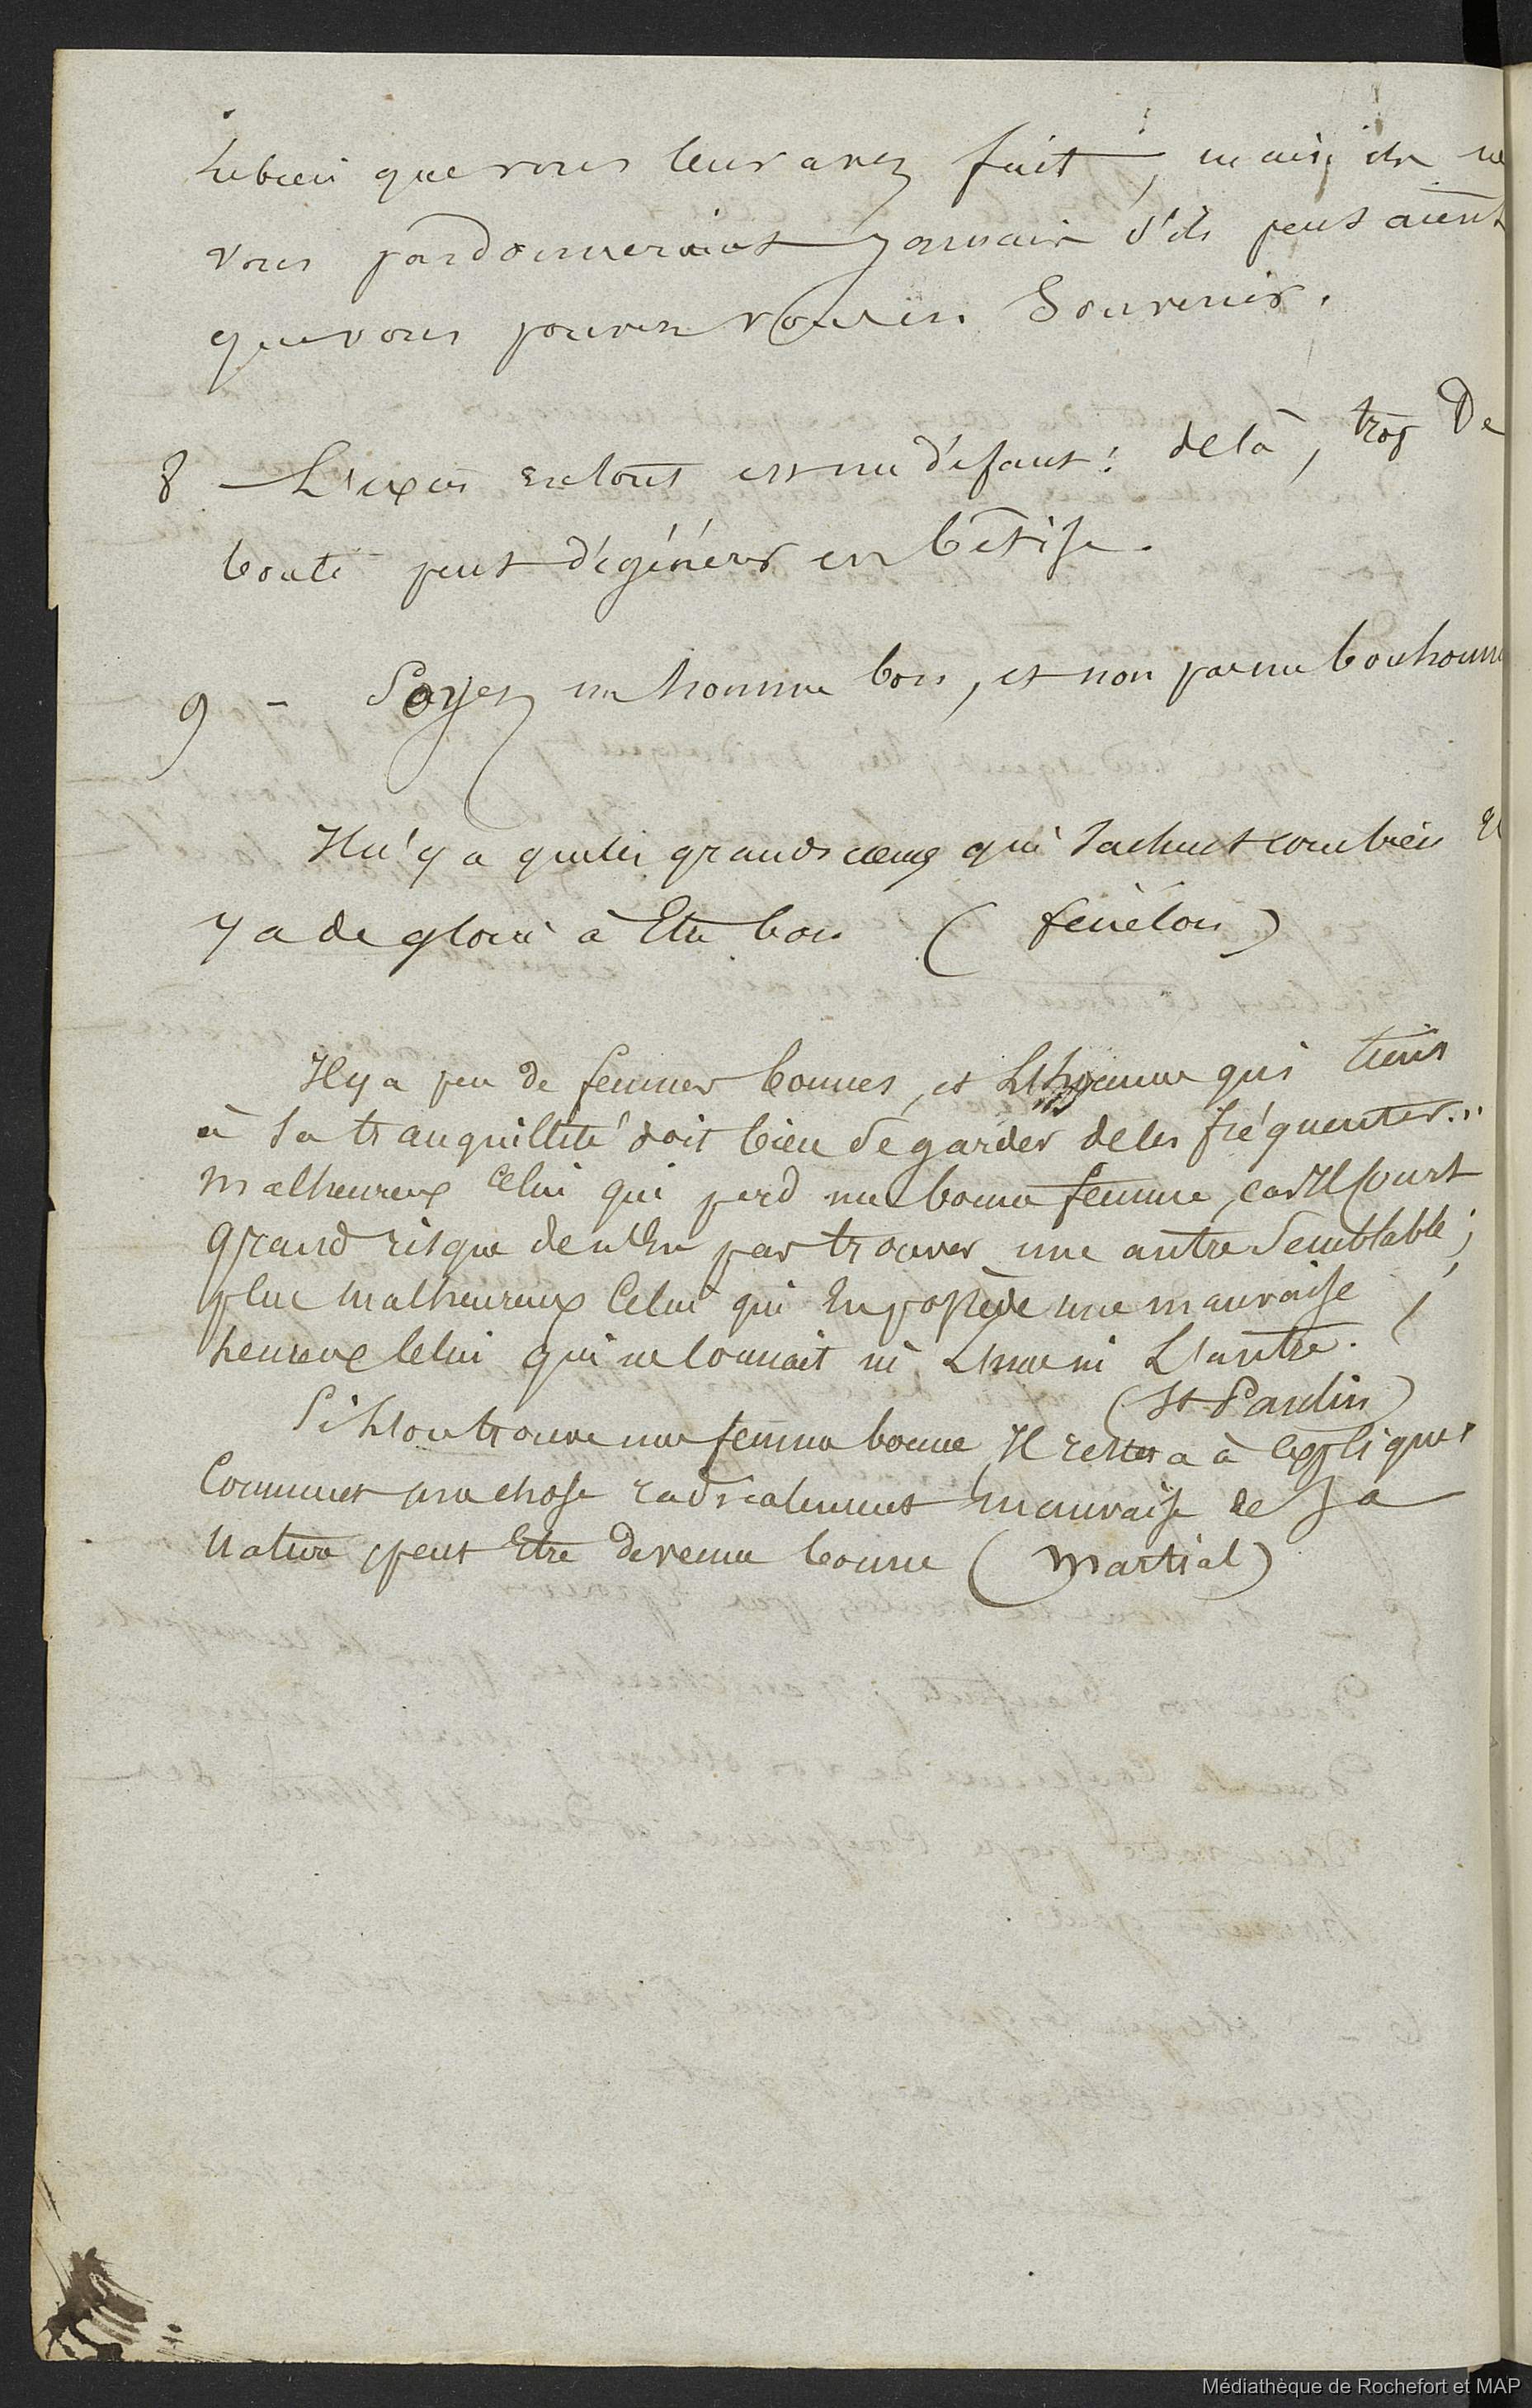 le bien que vous leur avez fait, mais ils ne
vous pardonneraient jamais s'ils pensaient
que vous pouvez vous en souvenir.
8 – L'excès en tout est un défaut : delà, trop De
bonté peut dégénérer en bêtise.
9 – Soyez un homme bon, et non pas un bonhomme
Il n'y a que les grands cœurs qui sachent combien il
y a de gloire à Etre bon (fénélon)
Il y a peu de femmes bonnes, et L'homme qui tient
à sa tranquillité doit bien se garder de les fréquenter..
malheureux celui qui perd une bonne femme, car Il court
grand risque de n'En pas trouver une autre semblable ;
plus malheureux Celui qui En possède une mauvaise ;
heureux Celui qui ne Connait ni L'une ni L'autre.
(St Paulin)
Si L'on trouve une femme bonne, Il restera à Expliquer
Comment une chose radicalement mauvaise de sa
Nature peut Etre devenue bonne (Martial)
Médiathèque de Rochefort et MAP